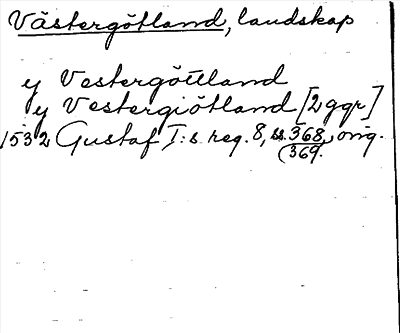 Västergötland, landskap
y Vestergöttland
y Vestergiötland [2 ggr]
1532 Gustaf I:s reg. 8, ss. 368, orig.
(369.